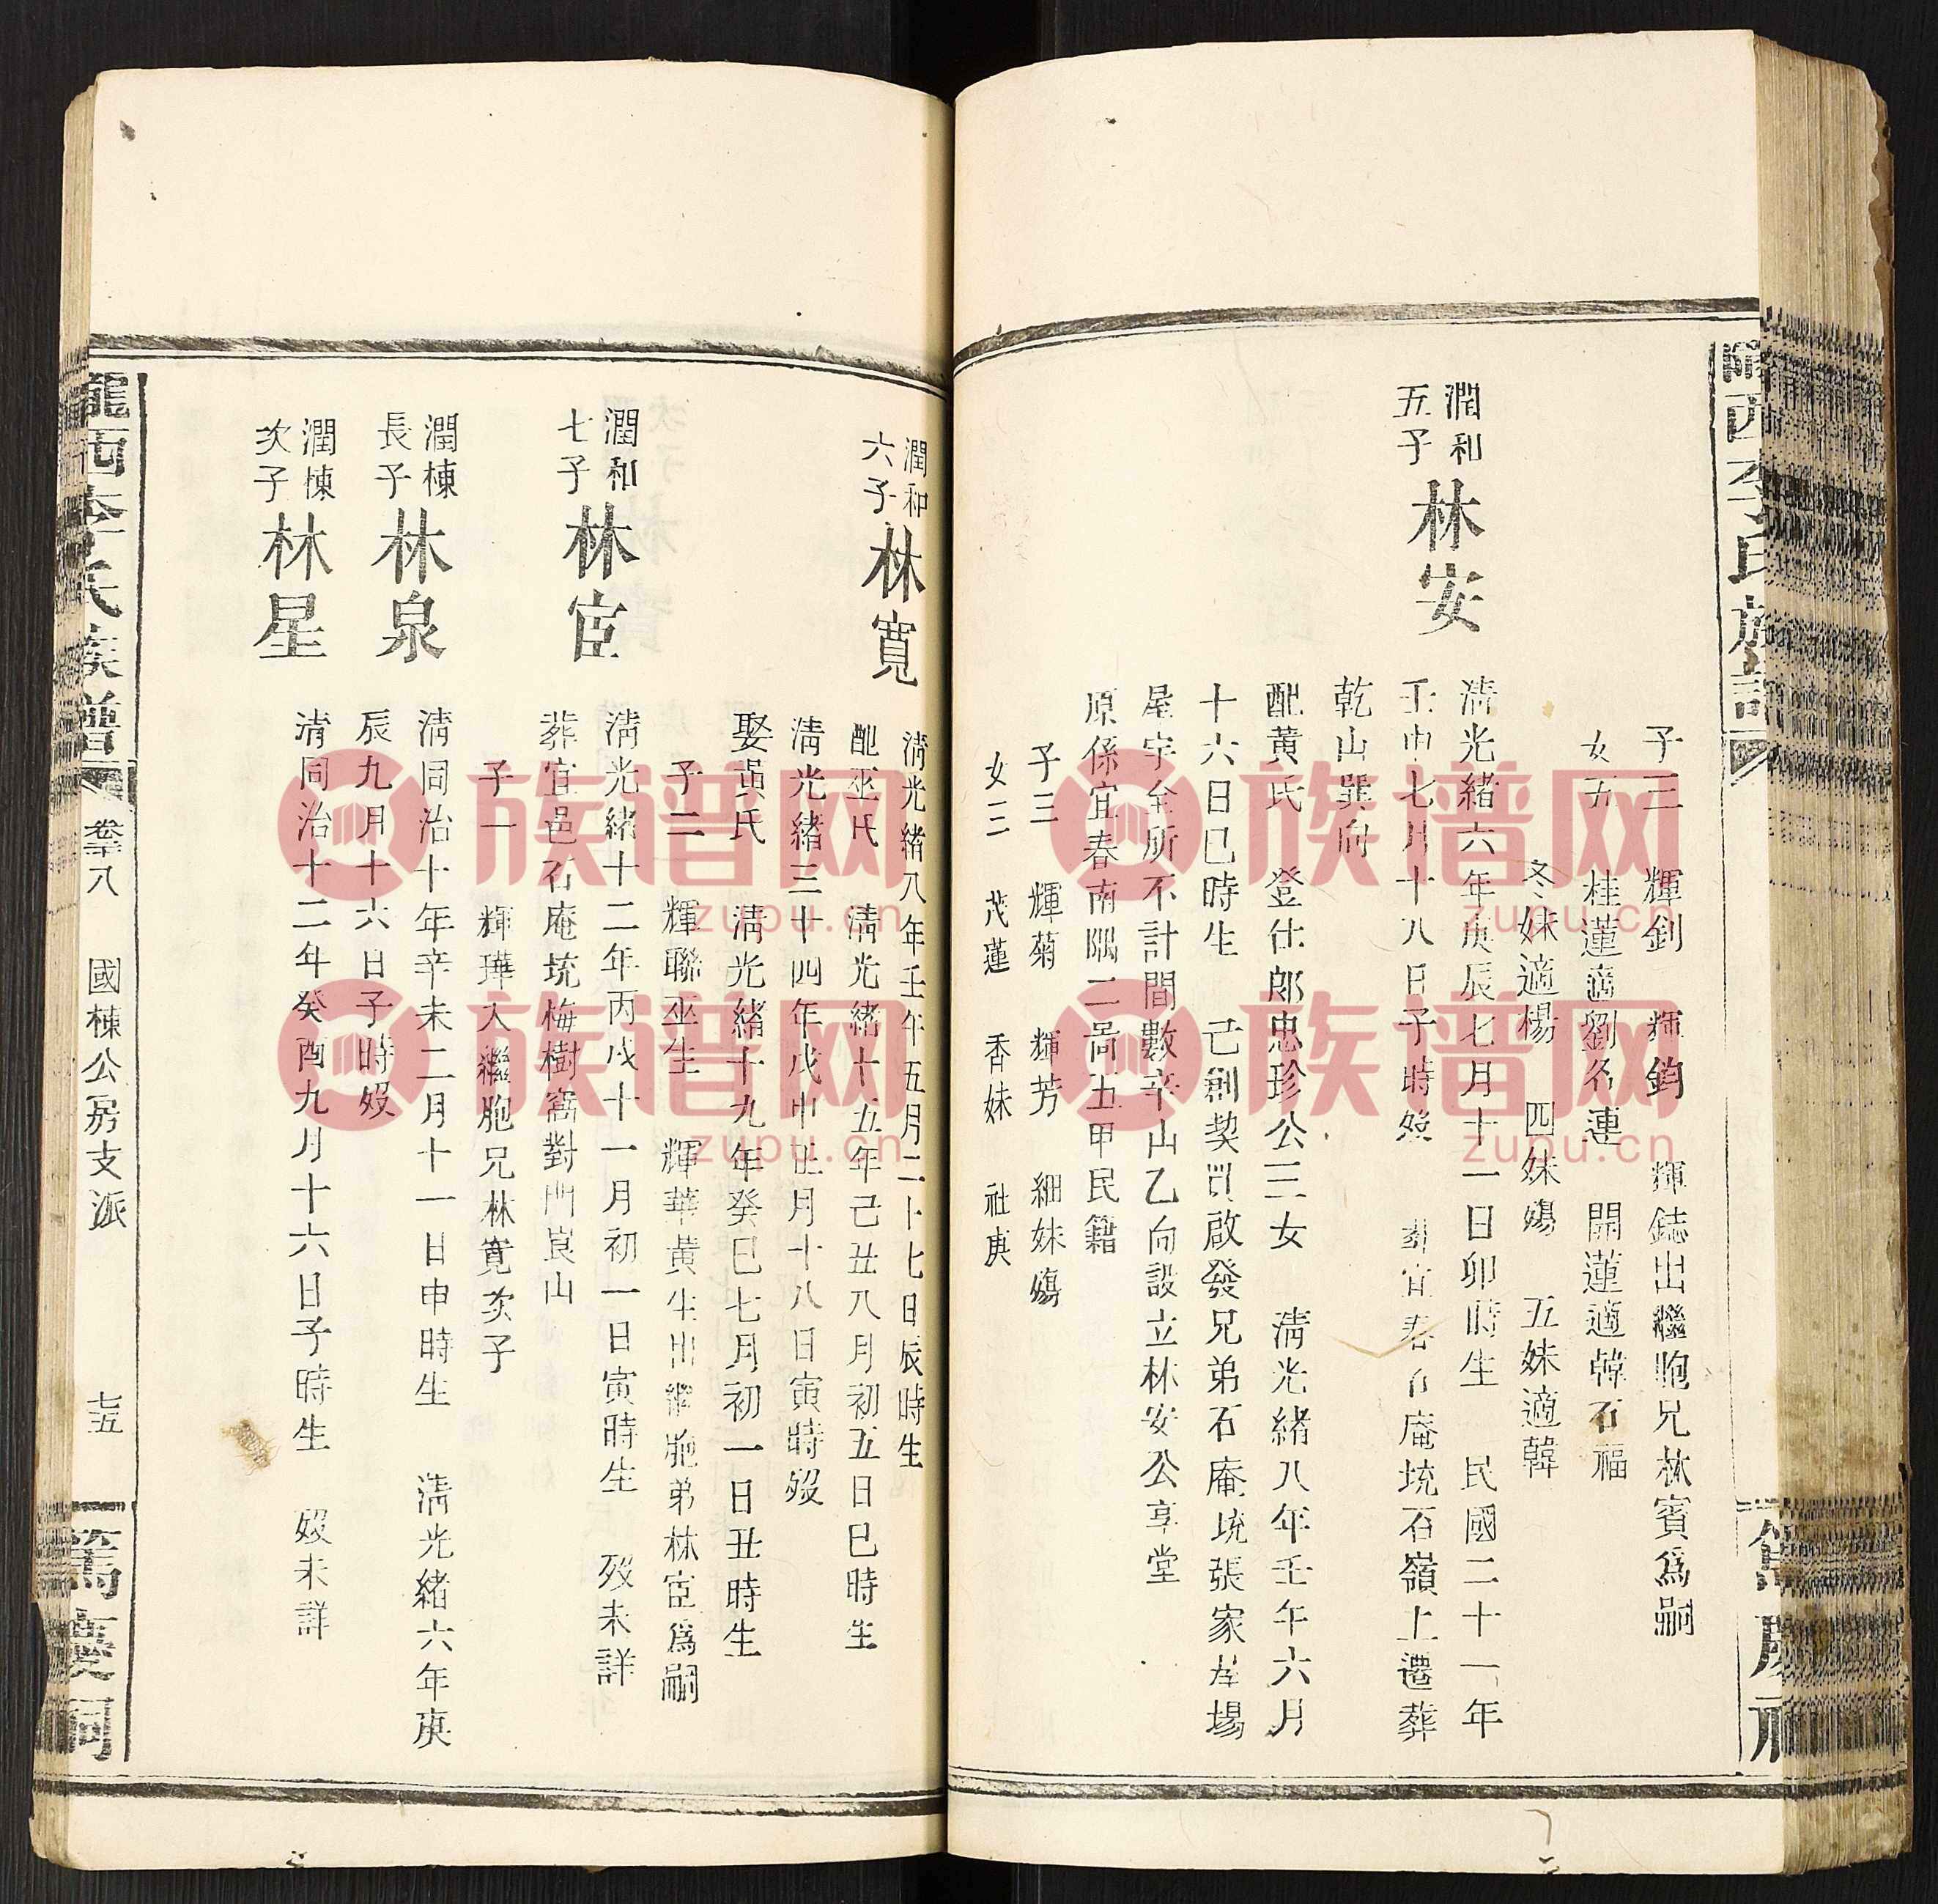 隴西李氏族譜
子三 輝釗 輝鈞 輝鋕出繼胞兄林賓爲嗣
女五 桂蓮適劉名連 開蓮適韓石福
冬妹適楊 四妹殤 五妹適韓
潤和
五子
林安
清光緒六年庚辰七月十一日卯時生 民國二十一年
壬申七月十八日子時歿 葬宜春石庵垸石嶺上遷葬
乾山巽向
配黃氏 登仕郎忠珍公三女 清光緒八年壬午六月
十六日巳時生 已創契買啟發兄弟石庵垸張家岸場
屋宇全所不計間數辛山乙向設立林安公享堂
原係宜春南隅二啚五甲民籍
子三 輝菊 輝芳 細妹殤
女三 茂蓮 香妹 社庚
潤和
六子
林寬
清光緒八年壬午五月二十七日辰時生
配巫氏 清光緒十五年己丑八月初五日巳時生
清光緒三十四年戊申正月十八日寅時歿
娶黃氏 清光緒十九年癸巳七月初一日丑時生
子二 輝聯巫生 輝華黃生出繼胞弟林宦爲嗣
潤和
七子
林宦
清光緒十二年丙戌十一月初一日寅時生 歿未詳
葬宜邑石庵垸梅樹窩對門崀山
子一 輝華入繼胞兄林寬次子
潤棟
長子
林泉
清同治十年辛未二月十一日申時生 清光緒六年庚
辰九月十六日子時歿
潤棟
次子
林星
清同治十二年癸酉九月十六日子時生 歿未詳
隴西李氏族譜 卷十八 國棟公房支派 七五 篤慶祠
族谱网
zupu.cn
族谱网
zupu.cn
族谱网
zupu.cn
族谱网
zupu.cn